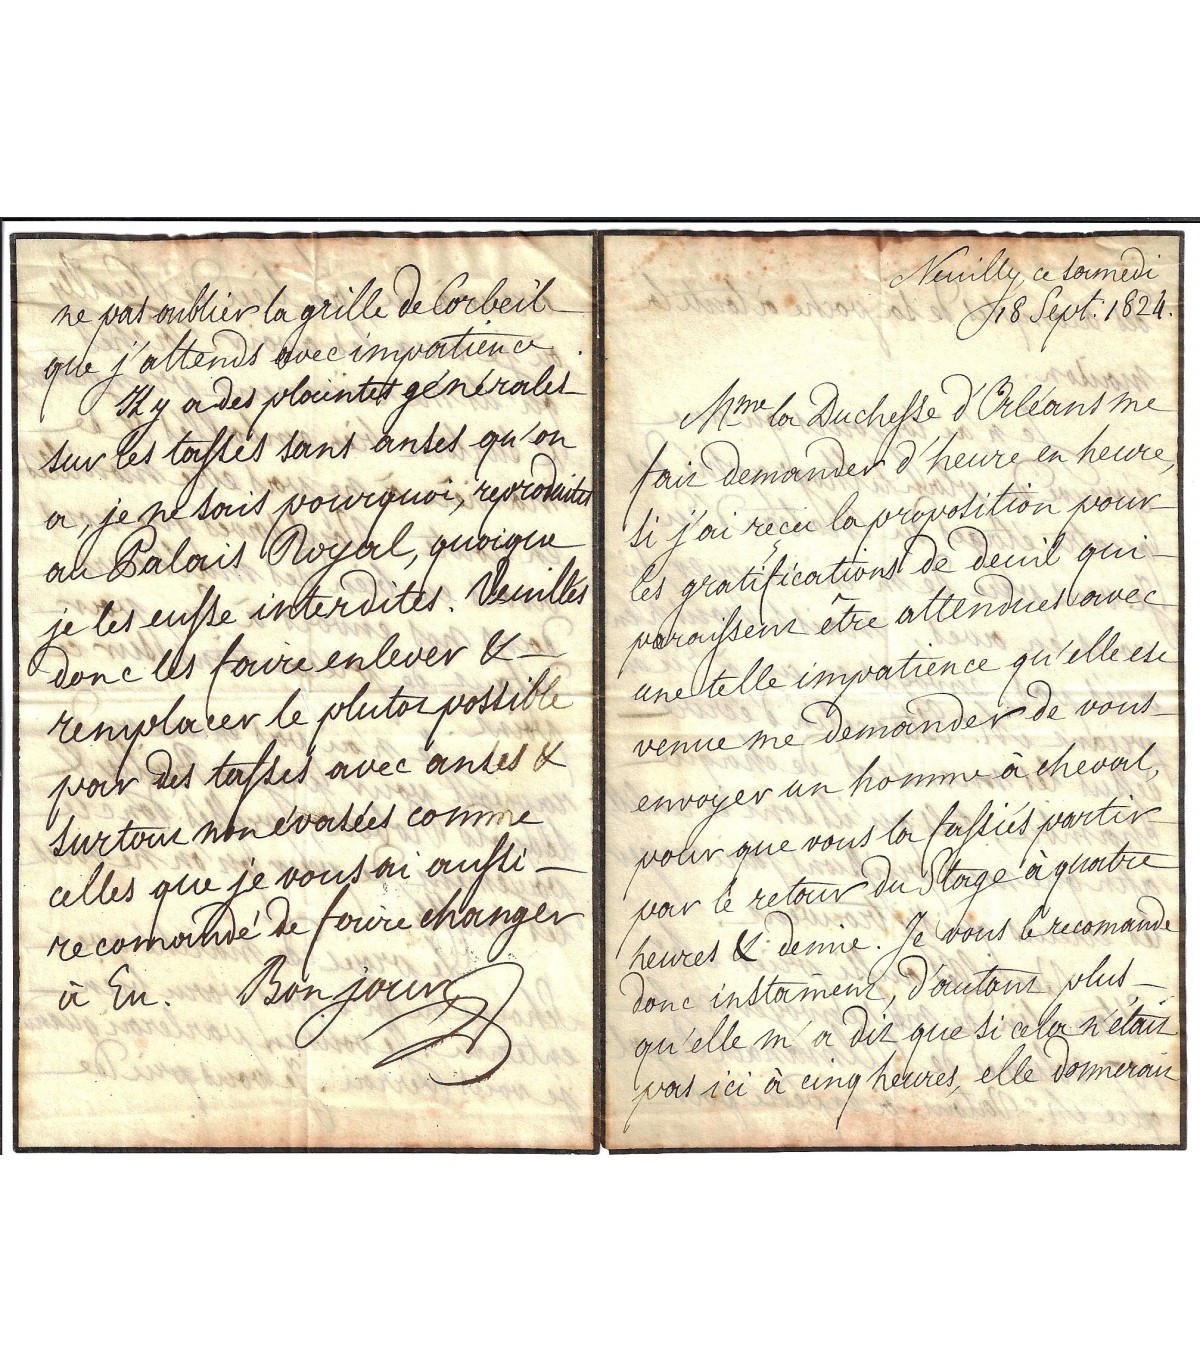 Neuilly, ce samedi
18 Sept. 1824.
Mme la Duchesse d'Orléans me
fait demander d'heure en heure,
si j'ai reçu la proposition pour
les gratifications de deuil qui
paraissent être attendues avec
une telle impatience qu'elle est
venue me demander de vous
envoyer un homme à cheval,
pour que vous la fassiés partir
par le retour du Stage à quatre
heures & demie. Je vous le recomande
donc instâment, d'autant plus
qu'elle m'a dit que si cela n'était
pas ici à cinq heures, elle donnerait
ne pas oublier la grille de Corbeil
que j'attends avec impatience.
Il y a des plaintes générales
sur les tasses sans anses qu'on
a, je ne sais pourquoi, reproduites
au Palais Royal, quoique
je les eusse interdites. Veuillés
donc les faire enlever &
remplacer le plutot possible
par des tasses avec anses &
surtout non évasées comme
celles que je vous ai aussi
recomandé de faire changer
à Eu. Bonjour